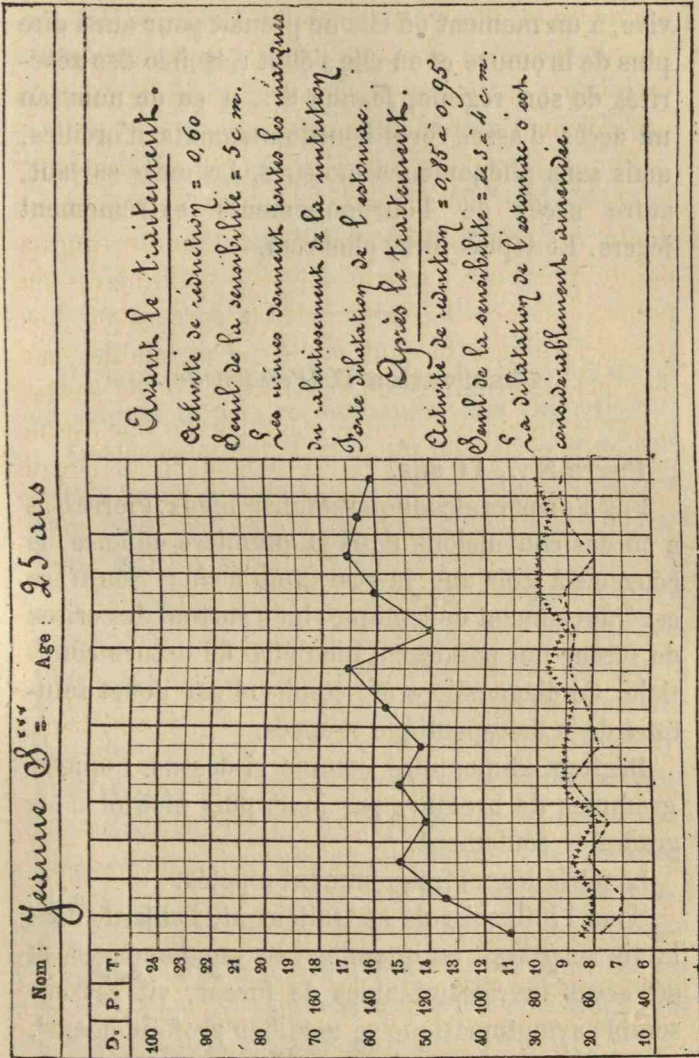 Nom: Jeanne S... Age 25 ans
D. P. T.
100 24
23
90 22
21
80 20
19
70 160 18
17
60 140 16
15
50 120 14
13
40 100 12
11
30 80 10
9
20 60 8
7
10 40 6
Avant le traitement.
Activité de réduction = 0,60
Seuil de la sensibilité = 5 m.
Les urines donnent toutes les marques
du ralentissement de la nutrition
Forte dilatation de l'estomac.
Après le traitement
Activité de réduction = 0,85 à 0,95
Seuil de la sensibilité = de 3 à 4 c.m.
La dilatation de l'estomac s'est
considérablement amendée.